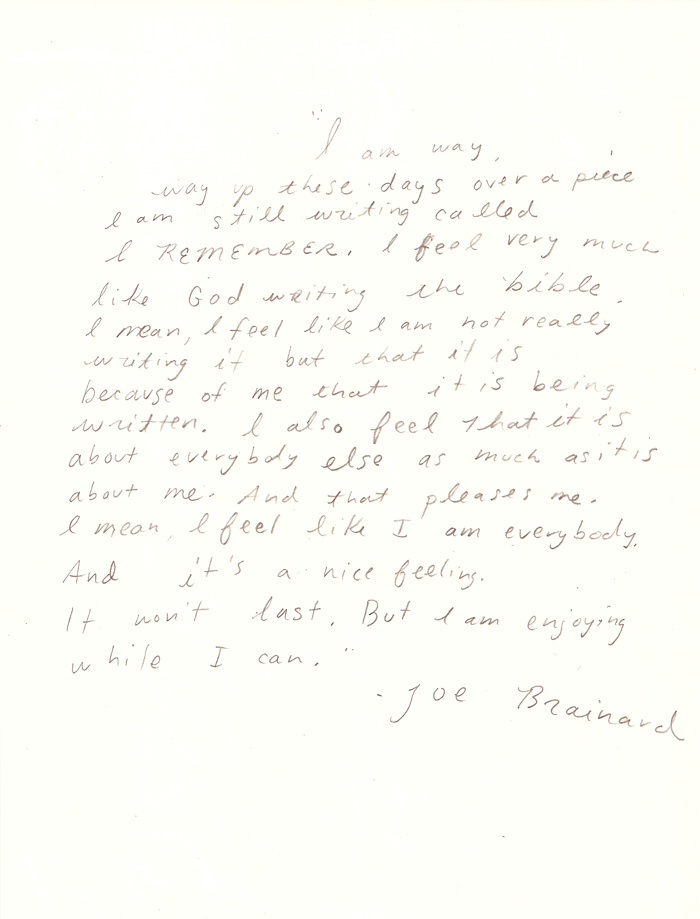 "I am way,
way up these days over a piece
I am still writing called
I REMEMBER. I feel very much
like God writing the bible.
I mean, I feel like I am not really
writing it but that it is
because of me that it is being
written. I also feel that it is
about everybody else as much as it is
about me. And that pleases me.
I mean, I feel like I am everybody.
And it's a nice feeling.
It won't last. But I am enjoying
while I can."
- Joe Brainard